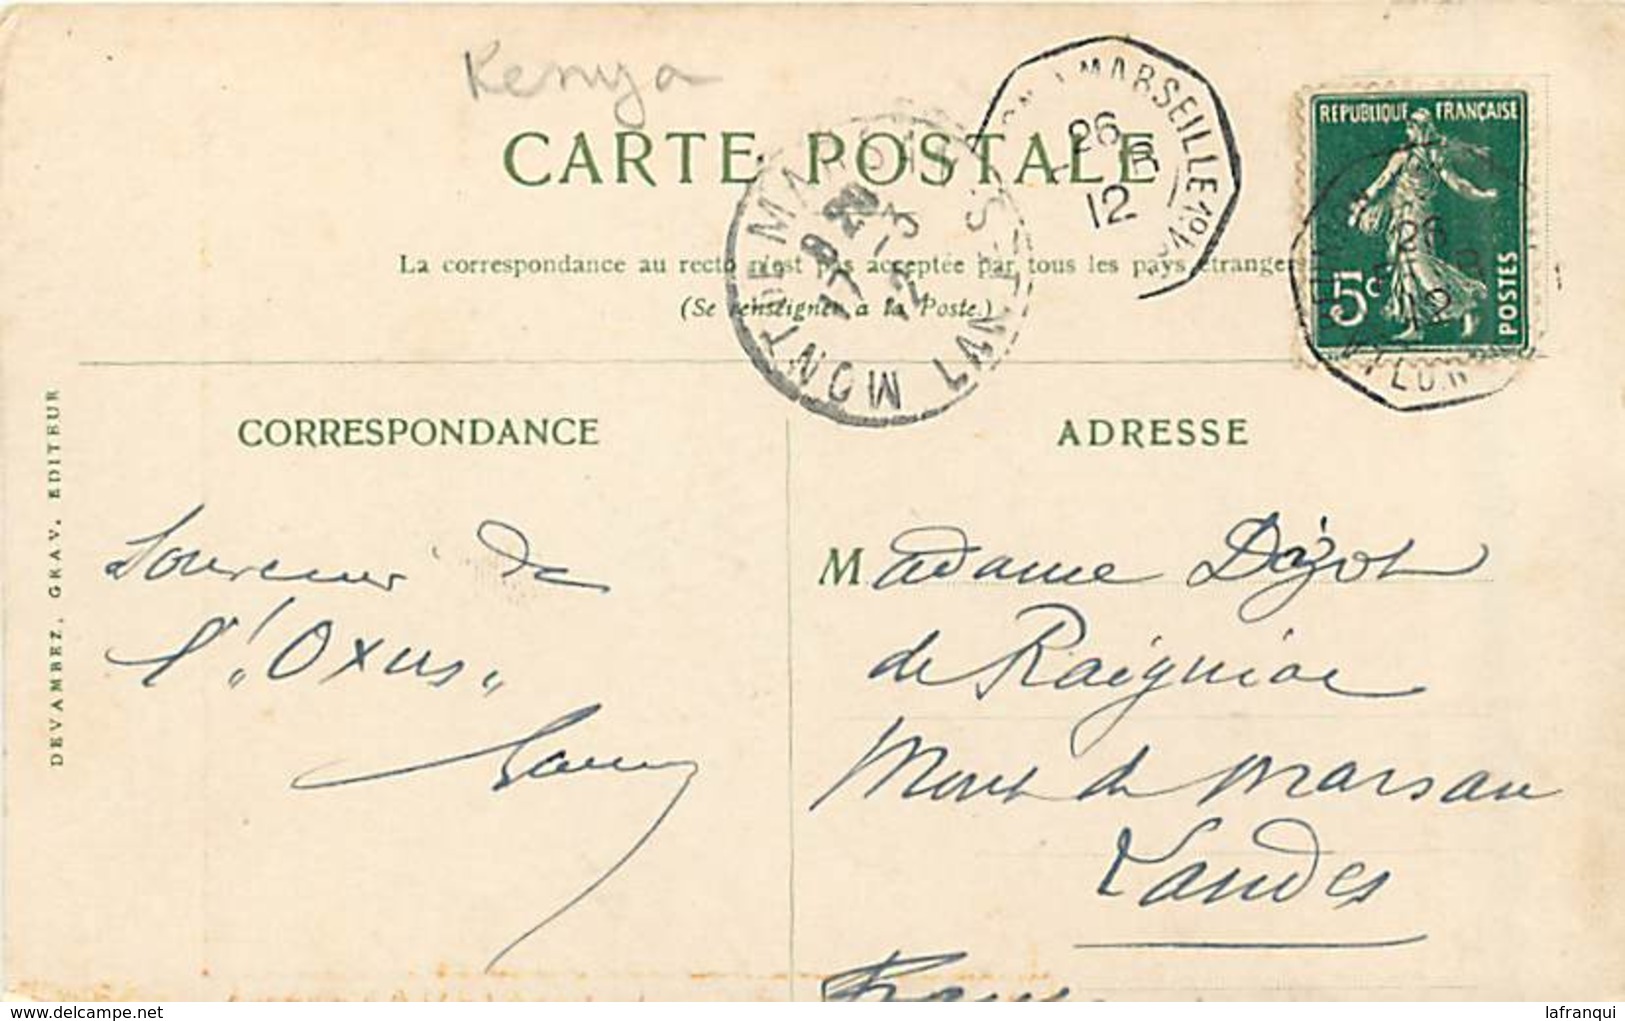 Kenya
CARTE POSTALE
La correspondance au recto n'est pas acceptée par tous les pays étrange
(Se renseigner a la Poste.)
MONT DE MARSAN LANDES
17 8 28 -3 12
MARSEILLE
26
12
REPUBLIQUE FRANÇAISE
5c
POSTES
26
12
DEVAMBEZ, GRAV. EDITEUR
CORRESPONDANCE
Souvenir de
l' "Oxus"
ADRESSE
Madame Dizot
de Raigniac
Mont de Marsan
Landes
France
lafranqui